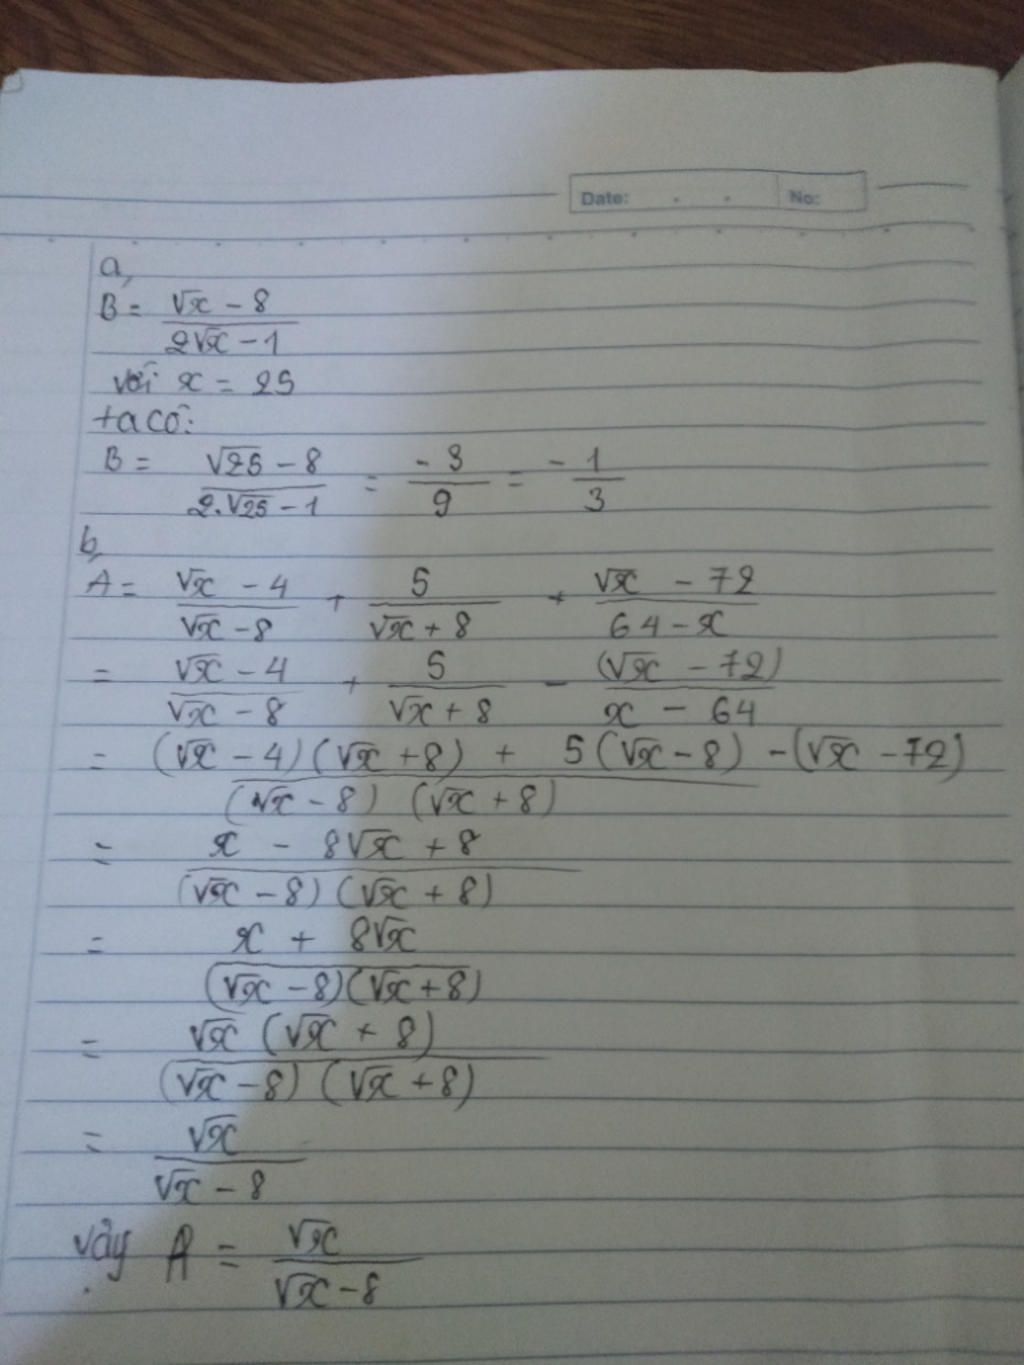 Date: . . No:
a,
B = (√x - 8)/(2√x - 1)
với x = 25
ta có:
B = (√25 - 8)/(2.√25 - 1) = (-3)/9 = - 1/3
b,
A = (√x - 4)/(√x - 8) + 5/(√x + 8) + (√x - 72)/(64 - x)
= (√x - 4)/(√x - 8) + 5/(√x + 8) - (√x - 72)/(x - 64)
= ((√x - 4)(√x + 8) + 5(√x - 8) - (√x - 72))/((√x - 8)(√x + 8))
= (x - 8√x + 8)/((√x - 8)(√x + 8))
= (x + 8√x)/((√x - 8)(√x + 8))
= (√x(√x + 8))/((√x - 8)(√x + 8))
= √x/(√x - 8)
vậy A = √x/(√x - 8)